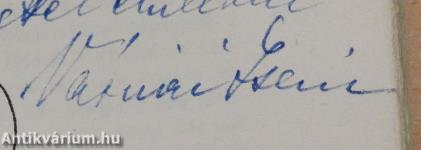 Várnai Zseni
Antikvárium.hu